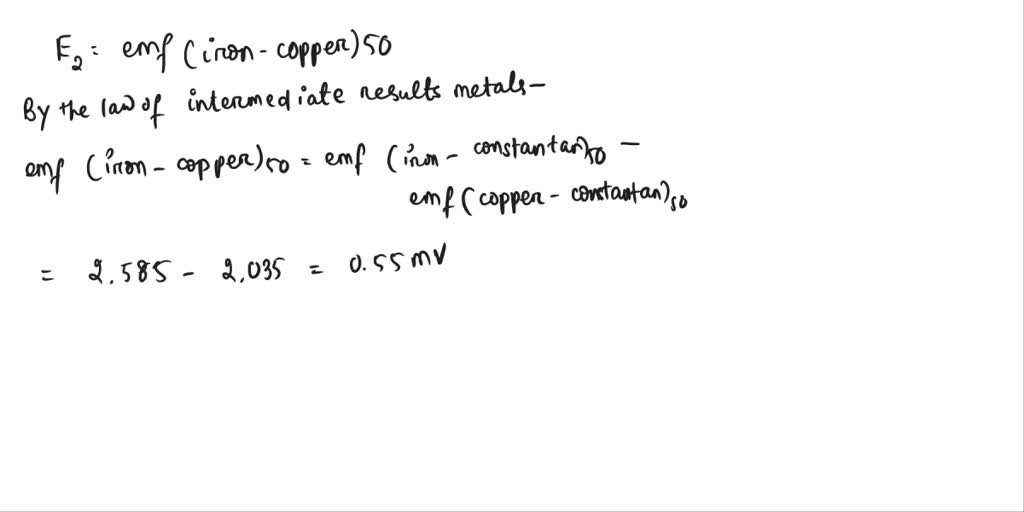 E₂ = emf (iron - copper)50
By the law of intermediate results metals—
emf (iron - copper)₅₀ = emf (iron - constantan)₅₀ —
emf (copper - constantan)₅₀
= 2.585 - 2.035 = 0.55 mV